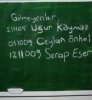 Gelmeyenler
211105 Uğur Kaymaz
011009 Ceylan Önkol
1211009 Serap Eser